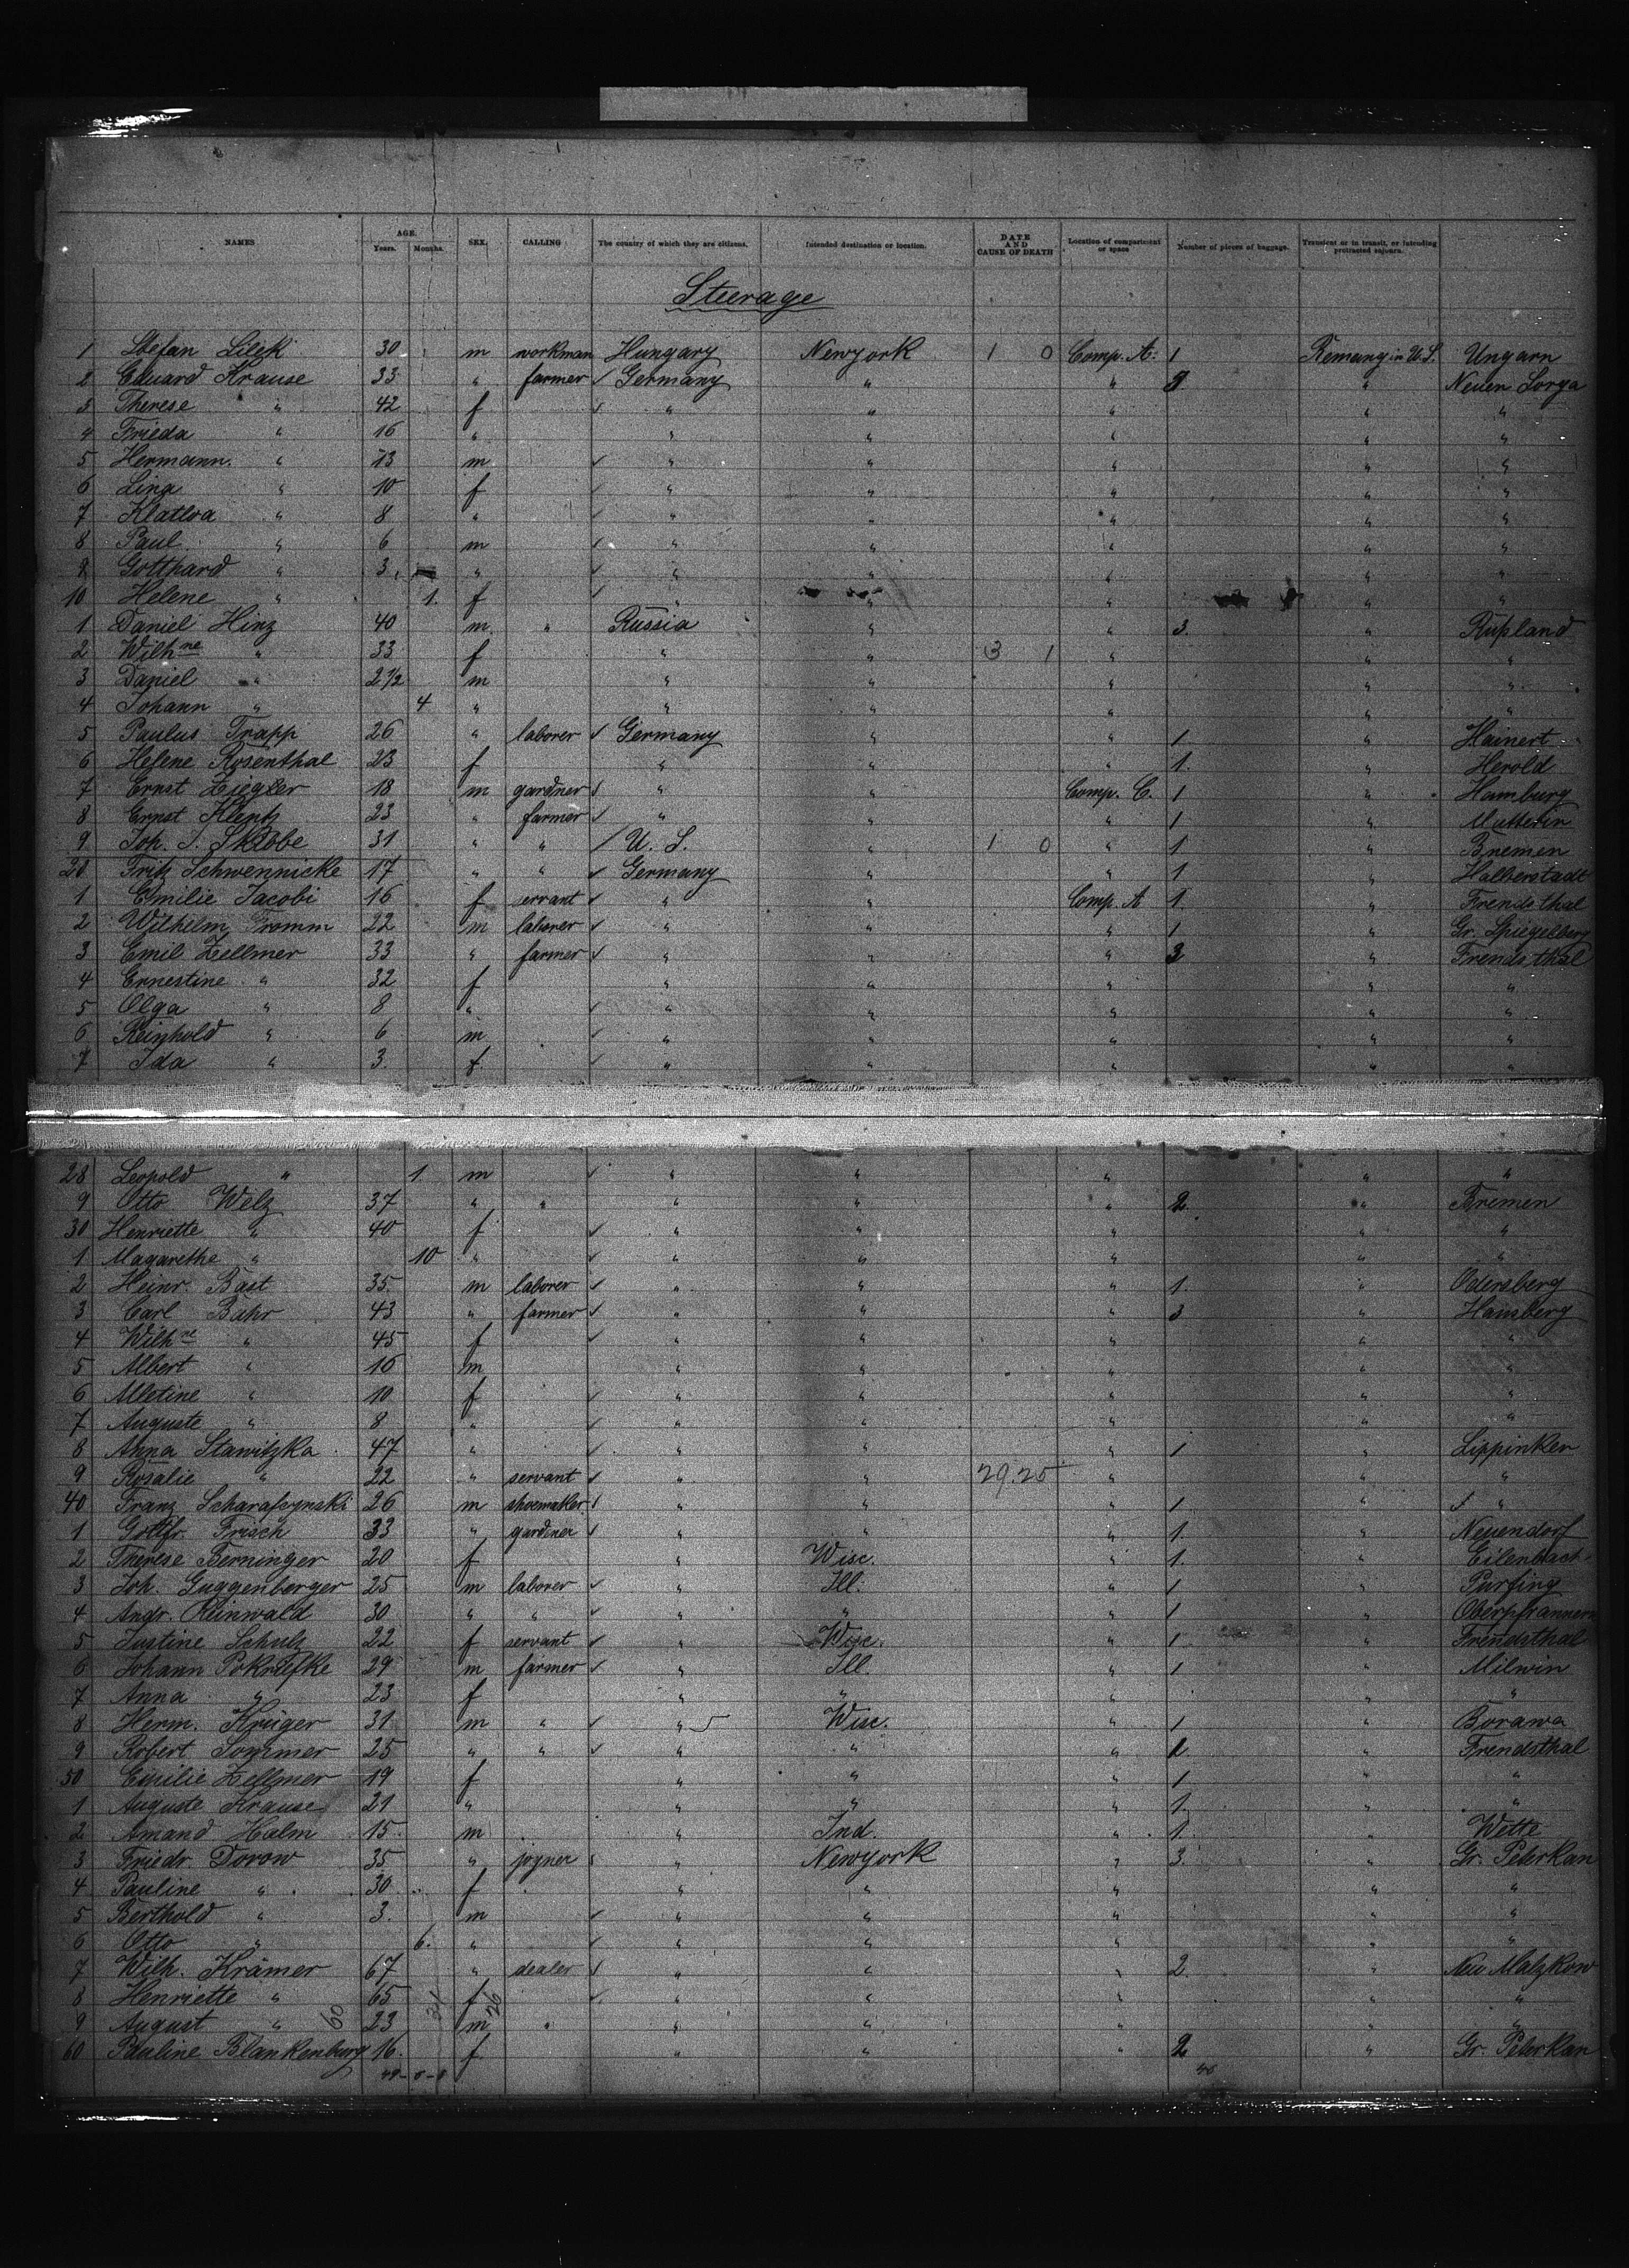 NAMES AGE. Years. Months. SEX. CALLING The country of which they are citizens. Intended destination or location. DATE AND CAUSE OF DEATH Location of compartment or space Number of pieces of baggage. Transient or in transit, or intending protracted sojourn.
Steerage
1 Stefan Lilek 30 m workman Hungary Newyork 1 0 Comp. A. 1 Remaing in U.S. Ungarn
2 Eduard Krause 33 " farmer ✓ Germany " " " Neuen Sorga
3 Therese " 42 f ✓ " " " " "
4 Frieda " 16 " " " " " "
5 Hermann " 13 m ✓ " " " " "
6 Lina " 10 f ✓ " " " " "
7 " 8 " ✓ " " " " "
8 Paul " 6 m ✓ " " " " "
9 Gotthard " 3 " ✓ " " " " "
10 Helene " 1. f ✓ " " " " "
1 Daniel Hinz 40 m " Russia " " 3 " Rußland
2 Wilhne " 33 f " " 3 1 " " "
3 Daniel " 2½ m " " " " "
4 Johann " 4 " " " " " "
5 Paulus Trapp 26 " laborer ✓ Germany " " 1 " Hainert
6 Helene Rosenthal 23 f " " " 1. " Herold
7 Ernst Ziegler 18 m gardner ✓ " " Comp. C. 1 " Hamburg
8 Ernst Klentz 23 " farmer ✓ " " " 1 " Mutterin
9 Joh. S. Skibbe 31 " " ✓ U. S. " 1 0 " 1 " Bremen
20 Fritz Schwennicke 17 " " ✓ Germany " " 1 " Halberstadt
1 Emilie Jacobi 16 f servant ✓ " " Comp. A 1 " Frendsthal
2 Wilhelm Fromm 22 m laborer ✓ " " " 1 " Gr. Spiegelberg
3 Emil Zellmer 33 " farmer ✓ " " " 3 " Frendsthal
4 Ernestine " 32 f " " " " "
5 Olga " 8 " ✓ " " " " "
6 Reinhold " 6 m ✓ " " " " "
7 Ida " 3. f ✓ " " " " "
28 Leopold " 1 m ✓ " " " " "
9 Otto Welz 37 " " " " " 2 " Bremen
30 Henriette " 40 f ✓ " " " " "
1 Magarethe " 10 " ✓ " " " " "
2 Heinr. Bast 35 m laborer ✓ " " " 1. " Odersberg
3 Carl Bahr 43 " farmer ✓ " " " 3 " Hansberg
4 Wilhne " 45 f ✓ " " " " "
5 Albert " 16 m " " " " "
6 Alletine " 10 f ✓ " " " " "
7 Auguste " 8 " ✓ " " " " "
8 Anna Stawitzka 47 " ✓ " " " 1 " Lippinken
9 Rosalie " 22 " servant ✓ " " 29.25 " " "
40 Franz Scharafzynski 26 m shoemaker ✓ " " " 1 " ✓ "
1 Gottfr. Frisch 33 " gardner ✓ " " " 1. " Neuendorf
2 Therese Berninger 20 f " Wisc. " 1. " Eilenbach
3 Joh. Guggenberger 25 m laborer ✓ " Ill. " 1 " Purfing
4 Andr. Reinwald 30 " " ✓ " " " 1 " Oberpframmern
5 Justine Schulz 22 f servant ✓ " Wisc. " 1 " Frendsthal
6 Johann Pokriefke 29 m farmer ✓ " Ill. " 1 " Milwin
7 Anna " 23 f " " " " "
8 Herm. Krüger 31 m " ✓ " Wisc. " 1 " Borawa
9 Robert Sommer 25 " " ✓ " " " 1 " Frendsthal
50 Emilie Zellmer 19 f " " " 1 " "
1 Auguste Krause 21 " " " " 1. " "
2 Amand Halm 15 m " Ind. " 1. " Wette
3 Friedr. Dorow 35 " joyner " Newyork " 3. " Gr. Peterkau
4 Pauline " 30 f " " " " "
5 Berthold " 3. m ✓ " " " " "
6 Otto " 6. " ✓ " " " " "
7 Wilh. Krämer 67 " dealer ✓ " " " 2. " Neu Malzkow
8 Henriette " 65 f ✓ " " " " "
9 August " 60 23 34 m 26 " " " " " "
60 Pauline Blankenburg 16. f " " " 2 " Gr. Peterkau